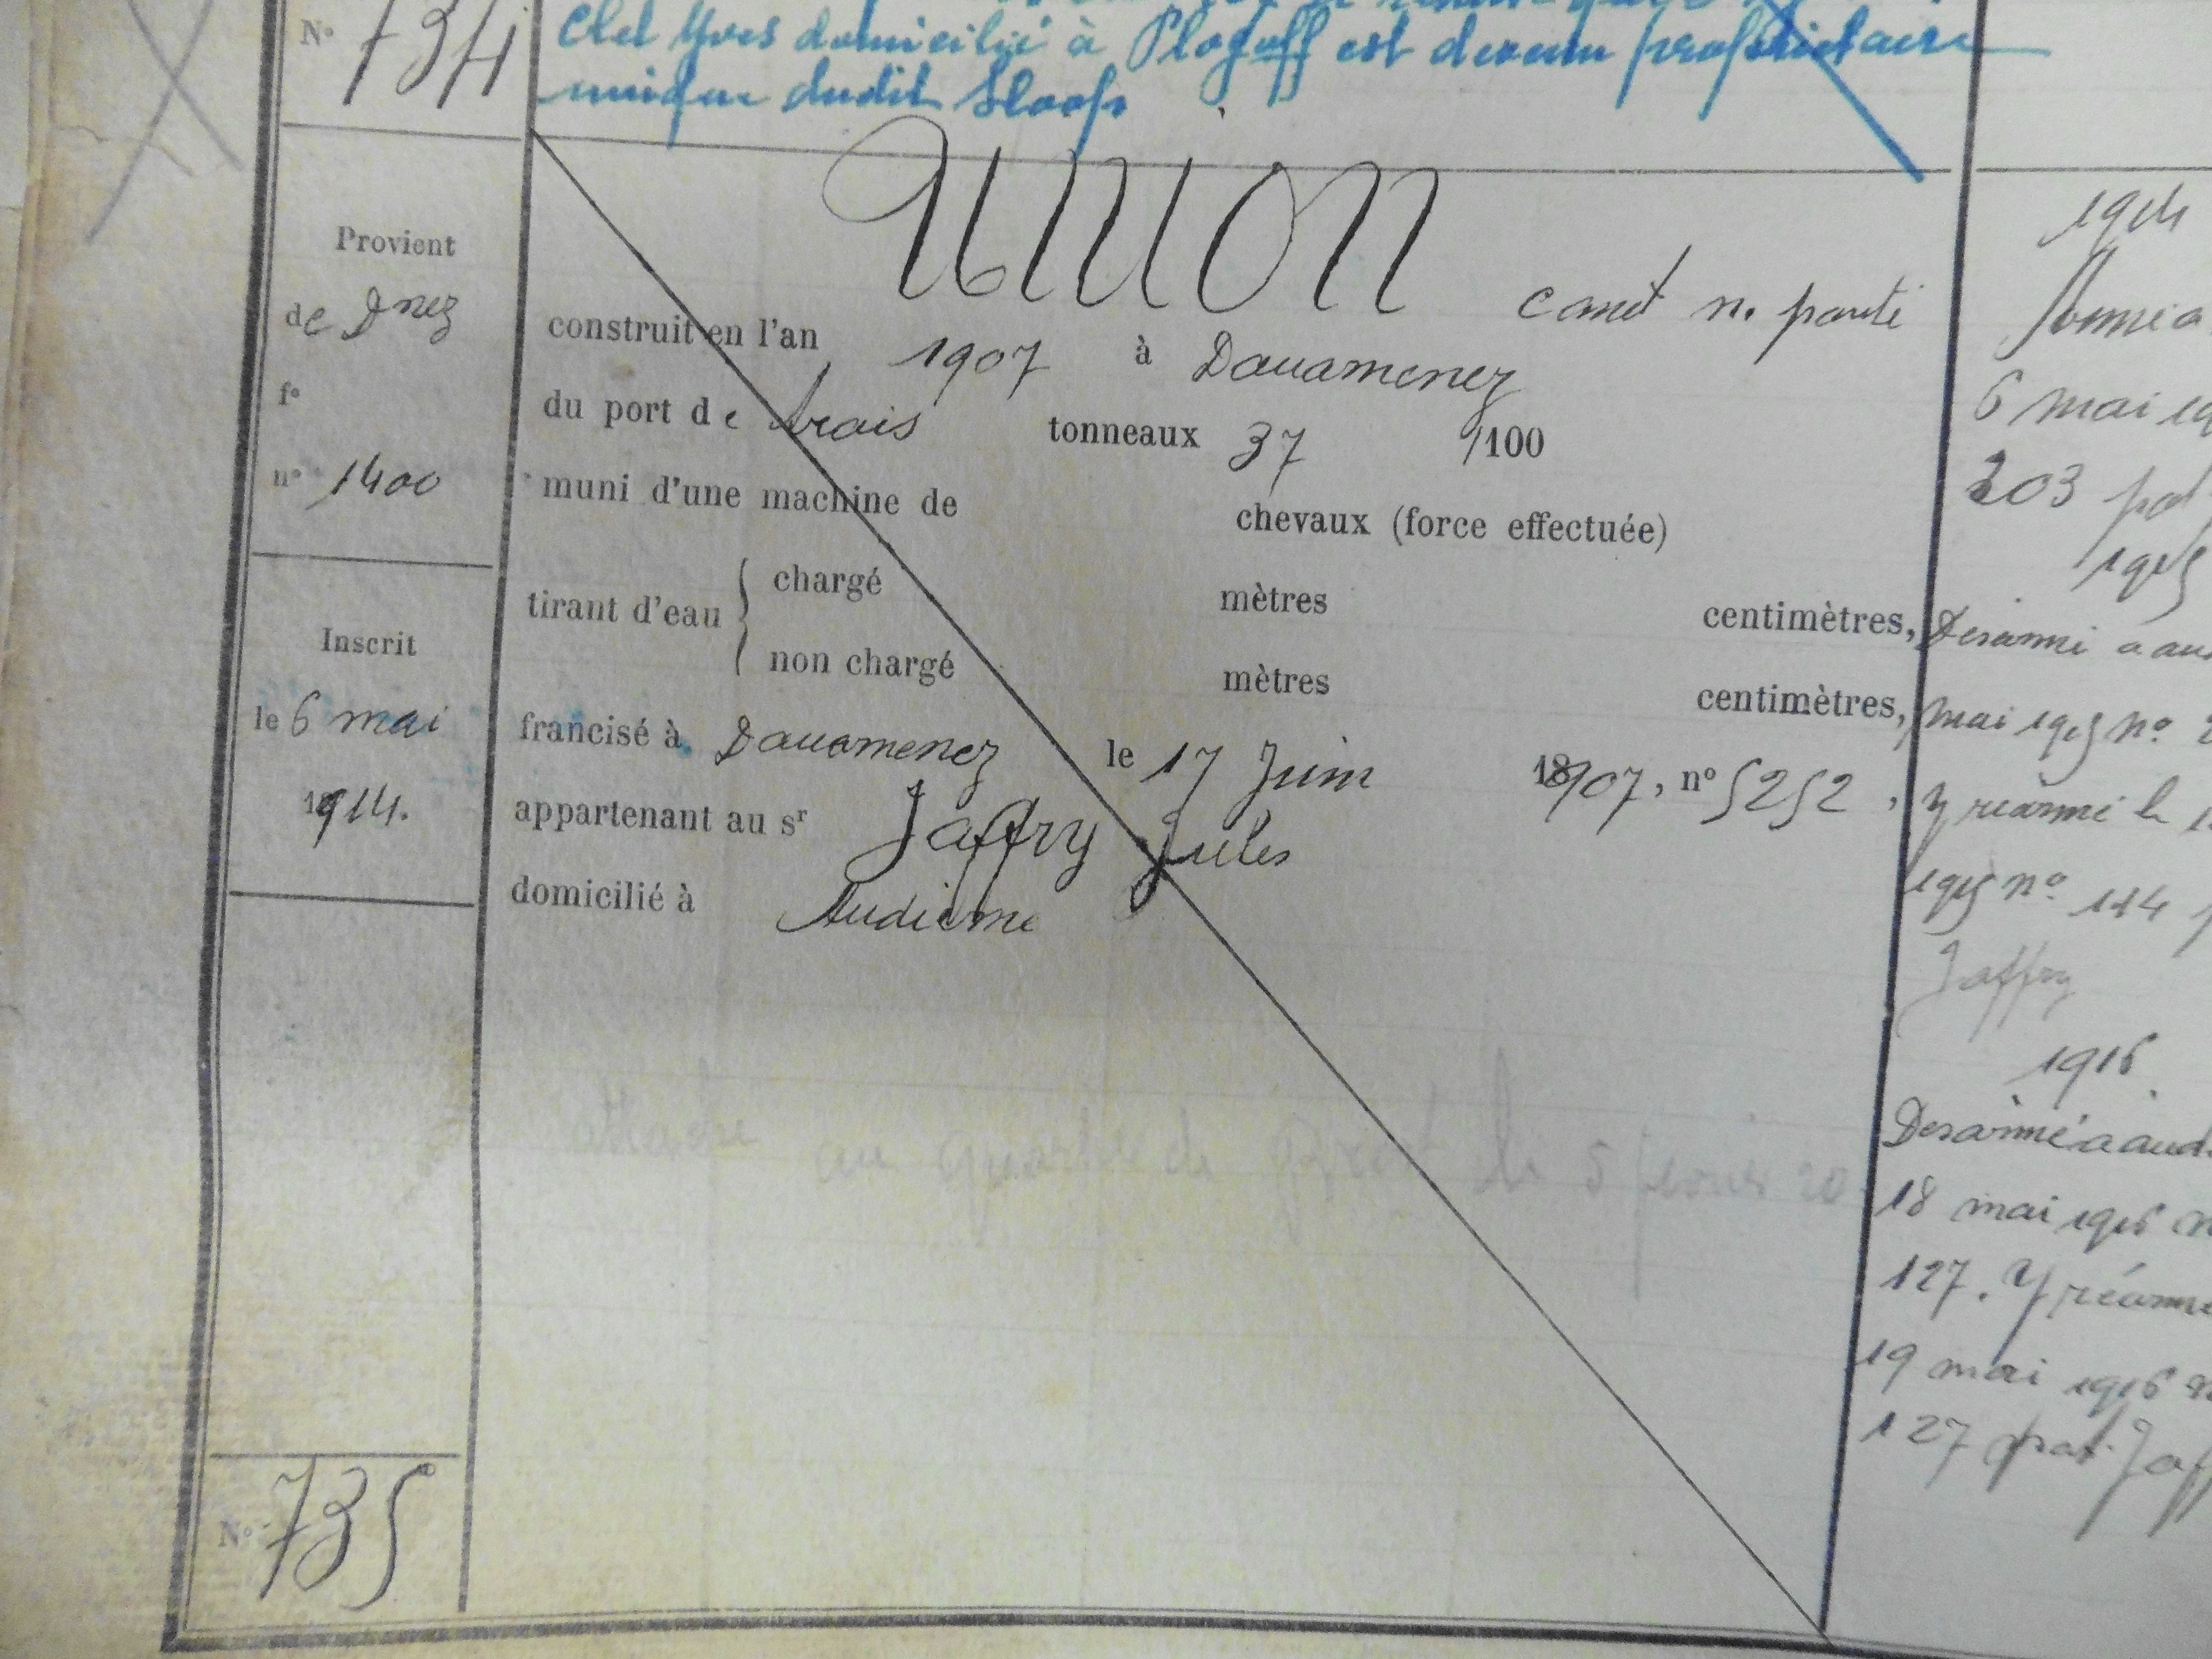 N° 734
Clet Yves domicilié à Plogoff est devenu propriétaire
unique dudit Sloop
UNION
canot n. ponté
Provient
de Dnez
f°
n° 1400
Inscrit
le 6 mai
1914.
N° 735
construit en l'an 1907 à Douarnenez
du port de trois tonneaux 37 /100
muni d'une machine de chevaux (force effectuée)
tirant d'eau { chargé mètres centimètres,
non chargé mètres centimètres,
francisé à Douarnenez le 17 Juin 1907, n° 5252,
appartenant au sr Jaffry Jules
domicilié à Audierne
attaché au quartier de le 5 février 20
1914
Armé a
6 mai 19
203 pat
1915
Désarmé a au
mai 1915 n°
Y réarmé le
1915 n° 114
Jaffry
1916
Désarmé a aud.
18 mai 1916 n
127. Y réarmé
19 mai 1916 n
127 pat. Jaf